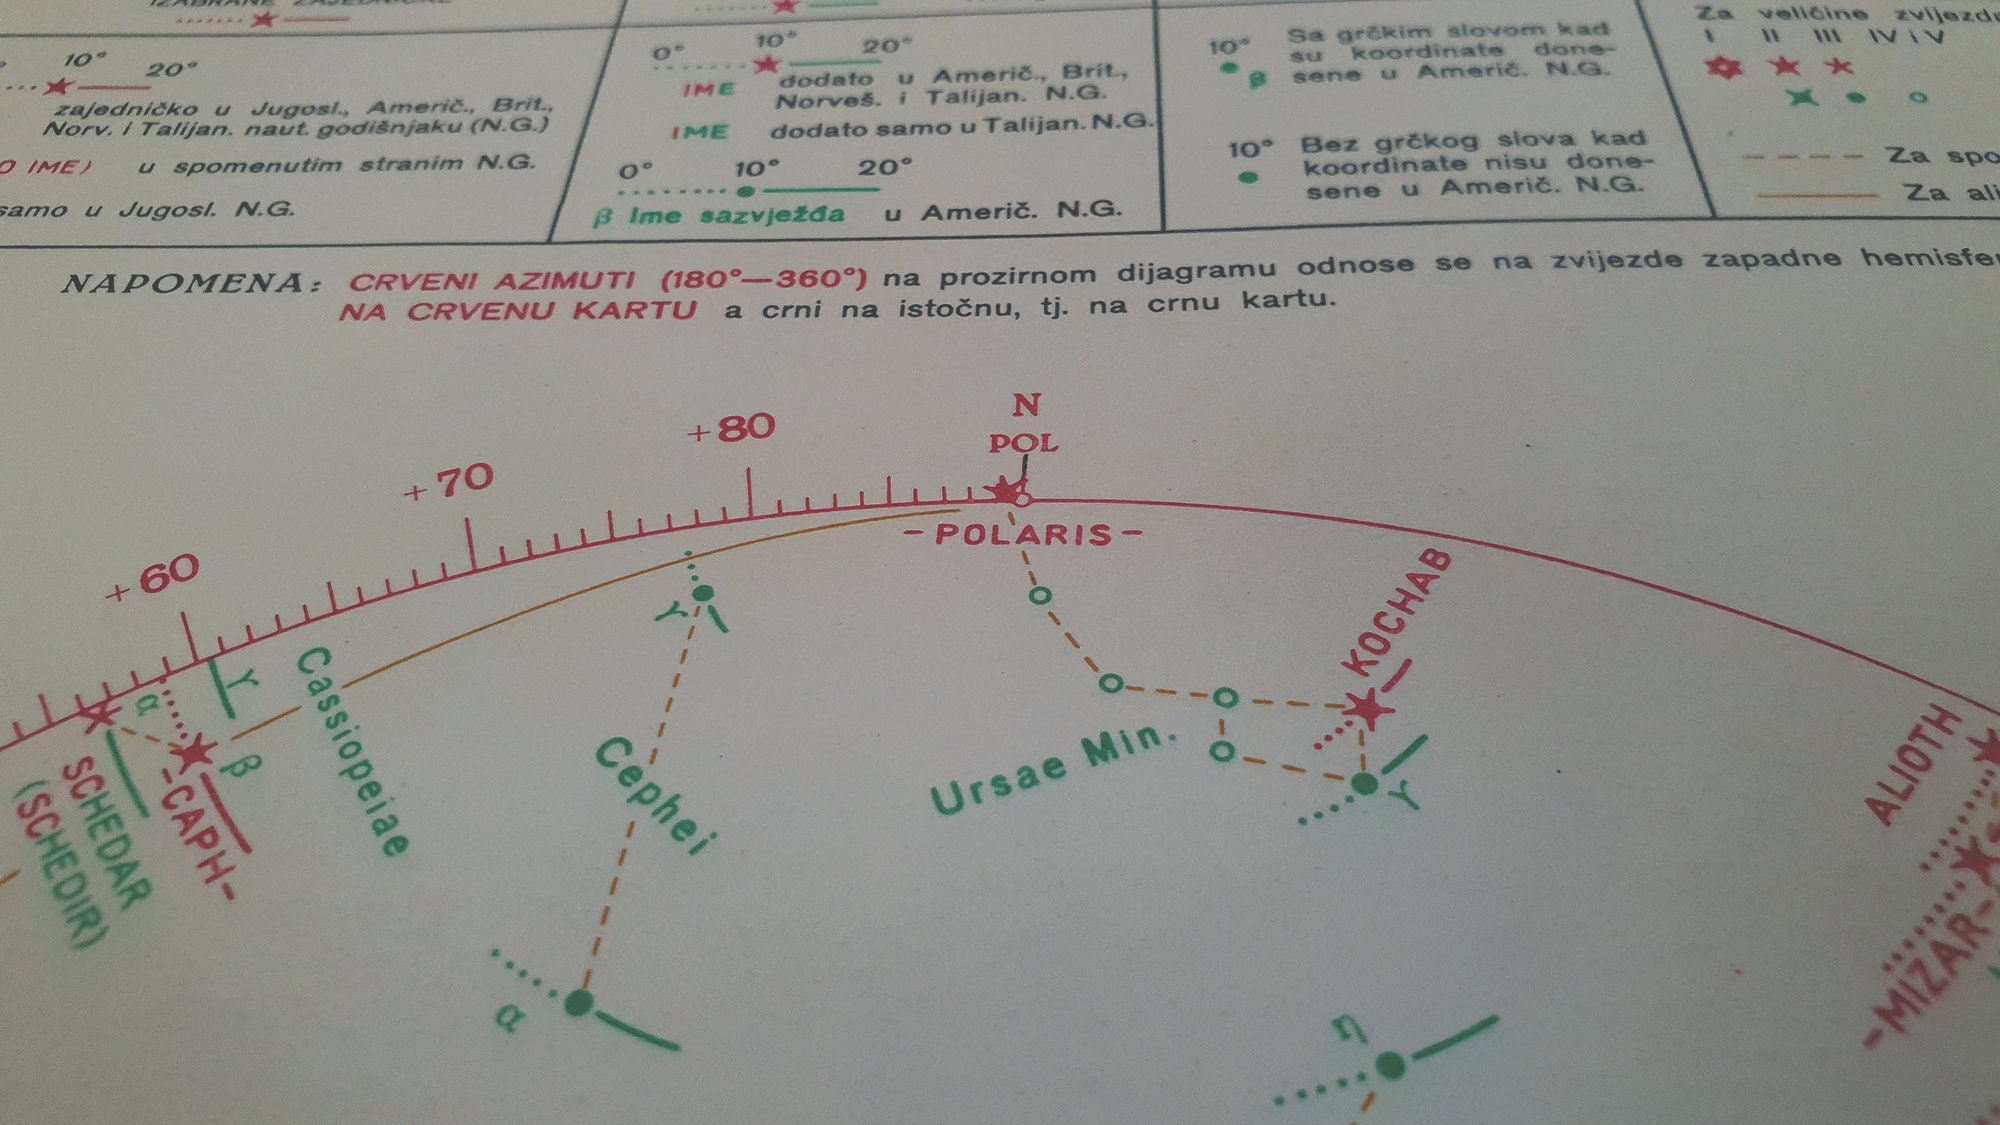 IZABRANE ZAJEDNIČKE
10° 20°
zajedničko u Jugosl., Američ., Brit.,
Norv. i Talijan. naut. godišnjaku (N.G.)
O IME) u spomenutim stranim N.G.
samo u Jugosl. N.G.
0° 10° 20°
IME dodato u Američ., Brit.,
Norveš. i Talijan. N.G.
IME dodato samo u Talijan. N.G.
0° 10° 20°
β Ime sazvježđa u Američ. N.G.
10° β Sa grčkim slovom kad
su koordinate done-
sene u Američ. N.G.
10° Bez grčkog slova kad
koordinate nisu done-
sene u Američ. N.G.
Za veličine zvijezda
I II III IV i V
Za spo
Za ali
NAPOMENA: CRVENI AZIMUTI (180°—360°) na prozirnom dijagramu odnose se na zvijezde zapadne hemisfe
NA CRVENU KARTU a crni na istočnu, tj. na crnu kartu.
N
POL
+80
+70
+60
-POLARIS-
KOCHAB
γ
γ
α
β
Cassiopeiae
Cephei
Ursae Min.
γ
ALIOTH
SCHEDAR
(SCHEDIR)
-CAPH-
-MIZAR-
α
η